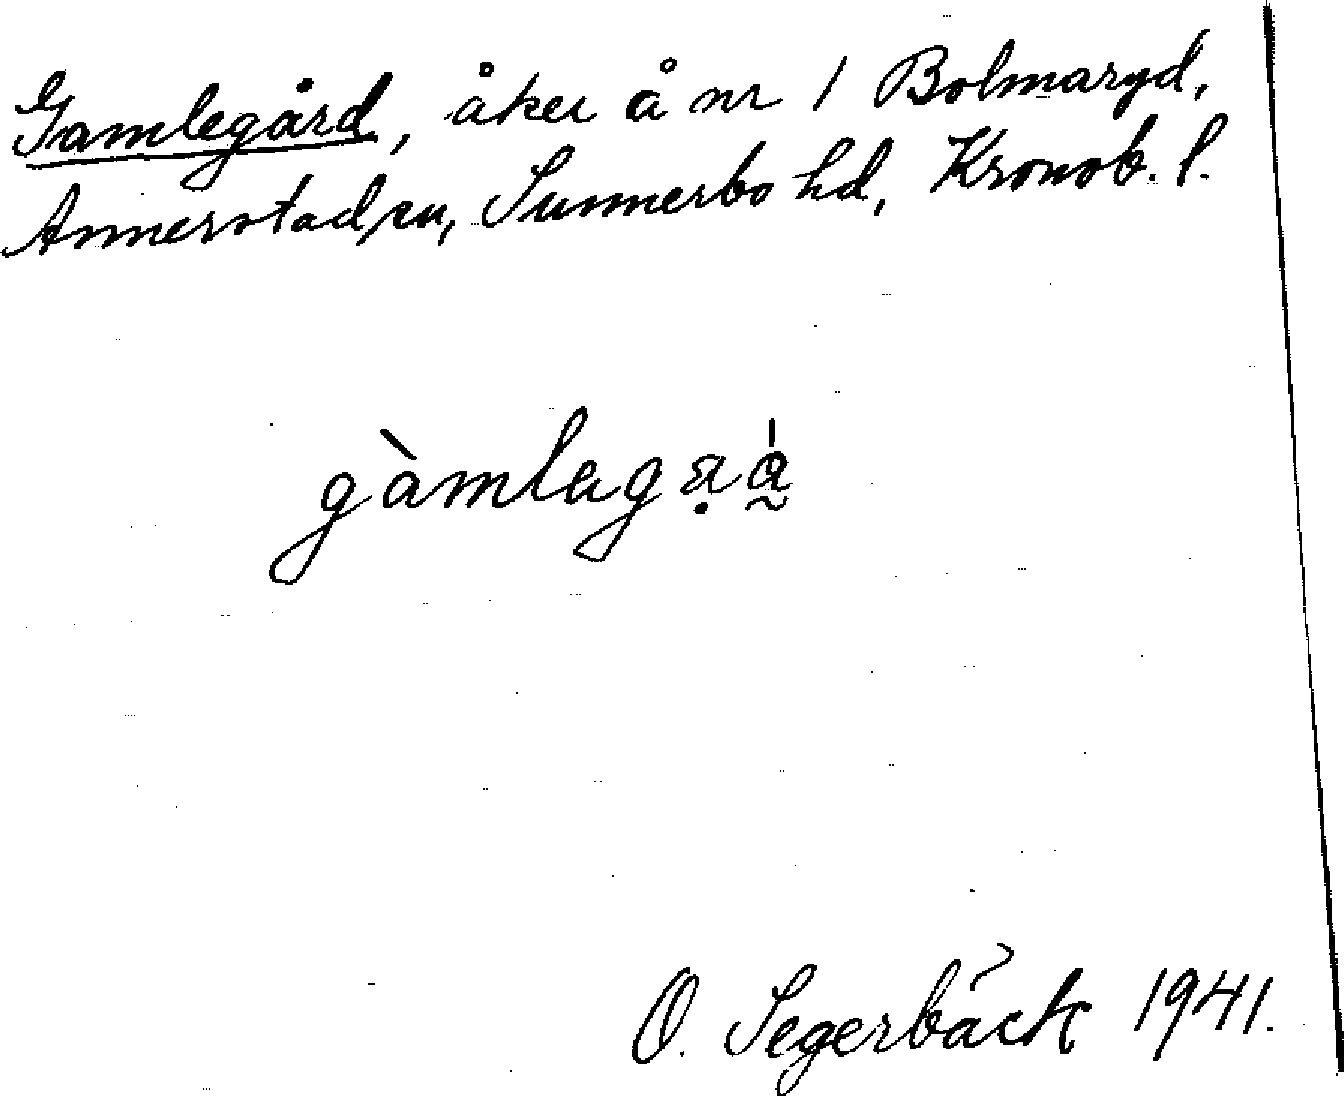 Gamlegård, åker å nr 1 Bolmaryd,
Annerstad sn, Sunnerbo hd, Kronob. l.
O. Segerbäck 1941.